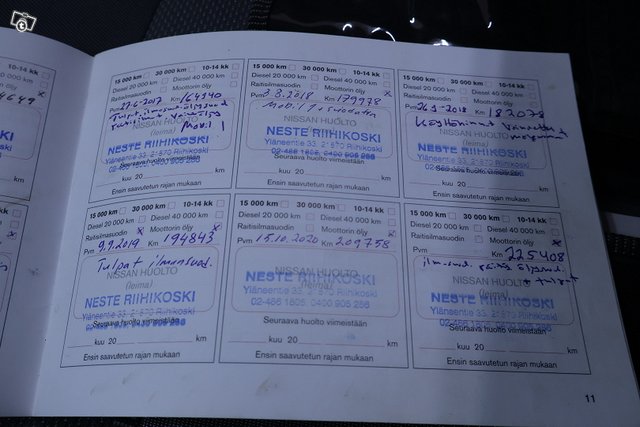 4649
15 000 km 30 000 km 10-14 kk
Diesel 20 000 km Diesel 40 000 km
Raitisilmasuodin Moottorin öljy
Pvm 27.6-2017 Km 164540
Mobil 1
NISSAN HUOLTO
(leima)
NESTE RIIHIKOSKI
Yläneentie 33, 21570 Riihikoski
Seuraava huolto viimeistään
kuu 20 km
Ensin saavutetun rajan mukaan
15 000 km 30 000 km 10-14 kk
Diesel 20 000 km Diesel 40 000 km
Raitisilmasuodin Moottorin öljy
Pvm 2.8.2018 Km 179978
Mobil 1 suodatin
NISSAN HUOLTO
NESTE RIIHIKOSKI
Yläneentie 33, 21570 Riihikoski
02-486 1805, 0400 906 286
Seuraava huolto viimeistään
kuu 20 km
Ensin saavutetun rajan mukaan
15 000 km 30 000 km 10-14 kk
Diesel 20 000 km Diesel 40 000 km
Raitisilmasuodin Moottorin öljy
Km 182078
NISSAN HUOLTO
(leima)
NESTE RIIHIKOSKI
Yläneentie 33, 21570 Riihikoski
Seuraava huolto viimeistään
kuu 20 km
Ensin saavutetun rajan mukaan
15 000 km 30 000 km 10-14 kk
Diesel 20 000 km Diesel 40 000 km
Raitisilmasuodin Moottorin öljy
Pvm 9.9.2019 Km 194843
Tulpat ilmansuod.
NISSAN HUOLTO
(leima)
NESTE RIIHIKOSKI
Yläneentie 33, 21570 Riihikoski
02-486 1805, 0400 906 286
Seuraava huolto viimeistään
kuu 20 km
Ensin saavutetun rajan mukaan
15 000 km 30 000 km 10-14 kk
Diesel 20 000 km Diesel 40 000 km
Raitisilmasuodin Moottorin öljy
Pvm 15.10.2020 Km 209758
NISSAN HUOLTO
(leima)
NESTE RIIHIKOSKI
Yläneentie 33, 21570 Riihikoski
02-486 1805, 0400 906 286
Seuraava huolto viimeistään
kuu 20 km
Ensin saavutetun rajan mukaan
15 000 km 30 000 km 10-14 kk
Diesel 20 000 km Diesel 40 000 km
Raitisilmasuodin Moottorin öljy
Pvm Km 225408
NISSAN HUOLTO
(leima)
NESTE RIIHIKOSKI
Yläneentie 33, 21570 Riihikoski
Seuraava huolto viimeistään
kuu 20 km
Ensin saavutetun rajan mukaan
11